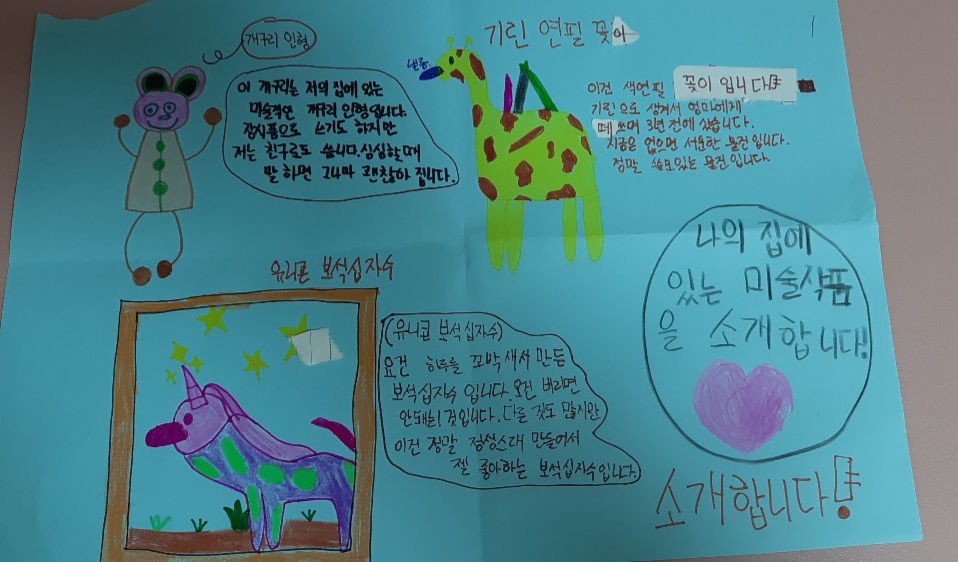 개구리 인형
이 개구리는 저의 집에 있는
미술작언 개구리 인형입니다.
장식품으로 쓰기도 하지만
저는 친구로도 씁니다. 심심할때
말 하면 그나마 괜찮아 집니다.
기린 연필 꽂이
이건 색연필 꽂이 입니다!
기린으로 생겨서 엄마에게
떼 쓰며 3년 전에 샀습니다.
지금은 없으면 서운한 물건입니다.
정말 쓸모있는 물건입니다
유니콘 보석십자수
(유니콘 보석십자수)
요건 하루를 꼬박새서 만든
보석십자수 입니다. 요건 버리면
안돼는! 것입니다. 다른 것도 많지만
이건 정말 정성스래 만들어서
젤 좋아하는 보석십자수입니다.
나의 집에
있는 미술작품
을 소개합니다!
소개합니다!